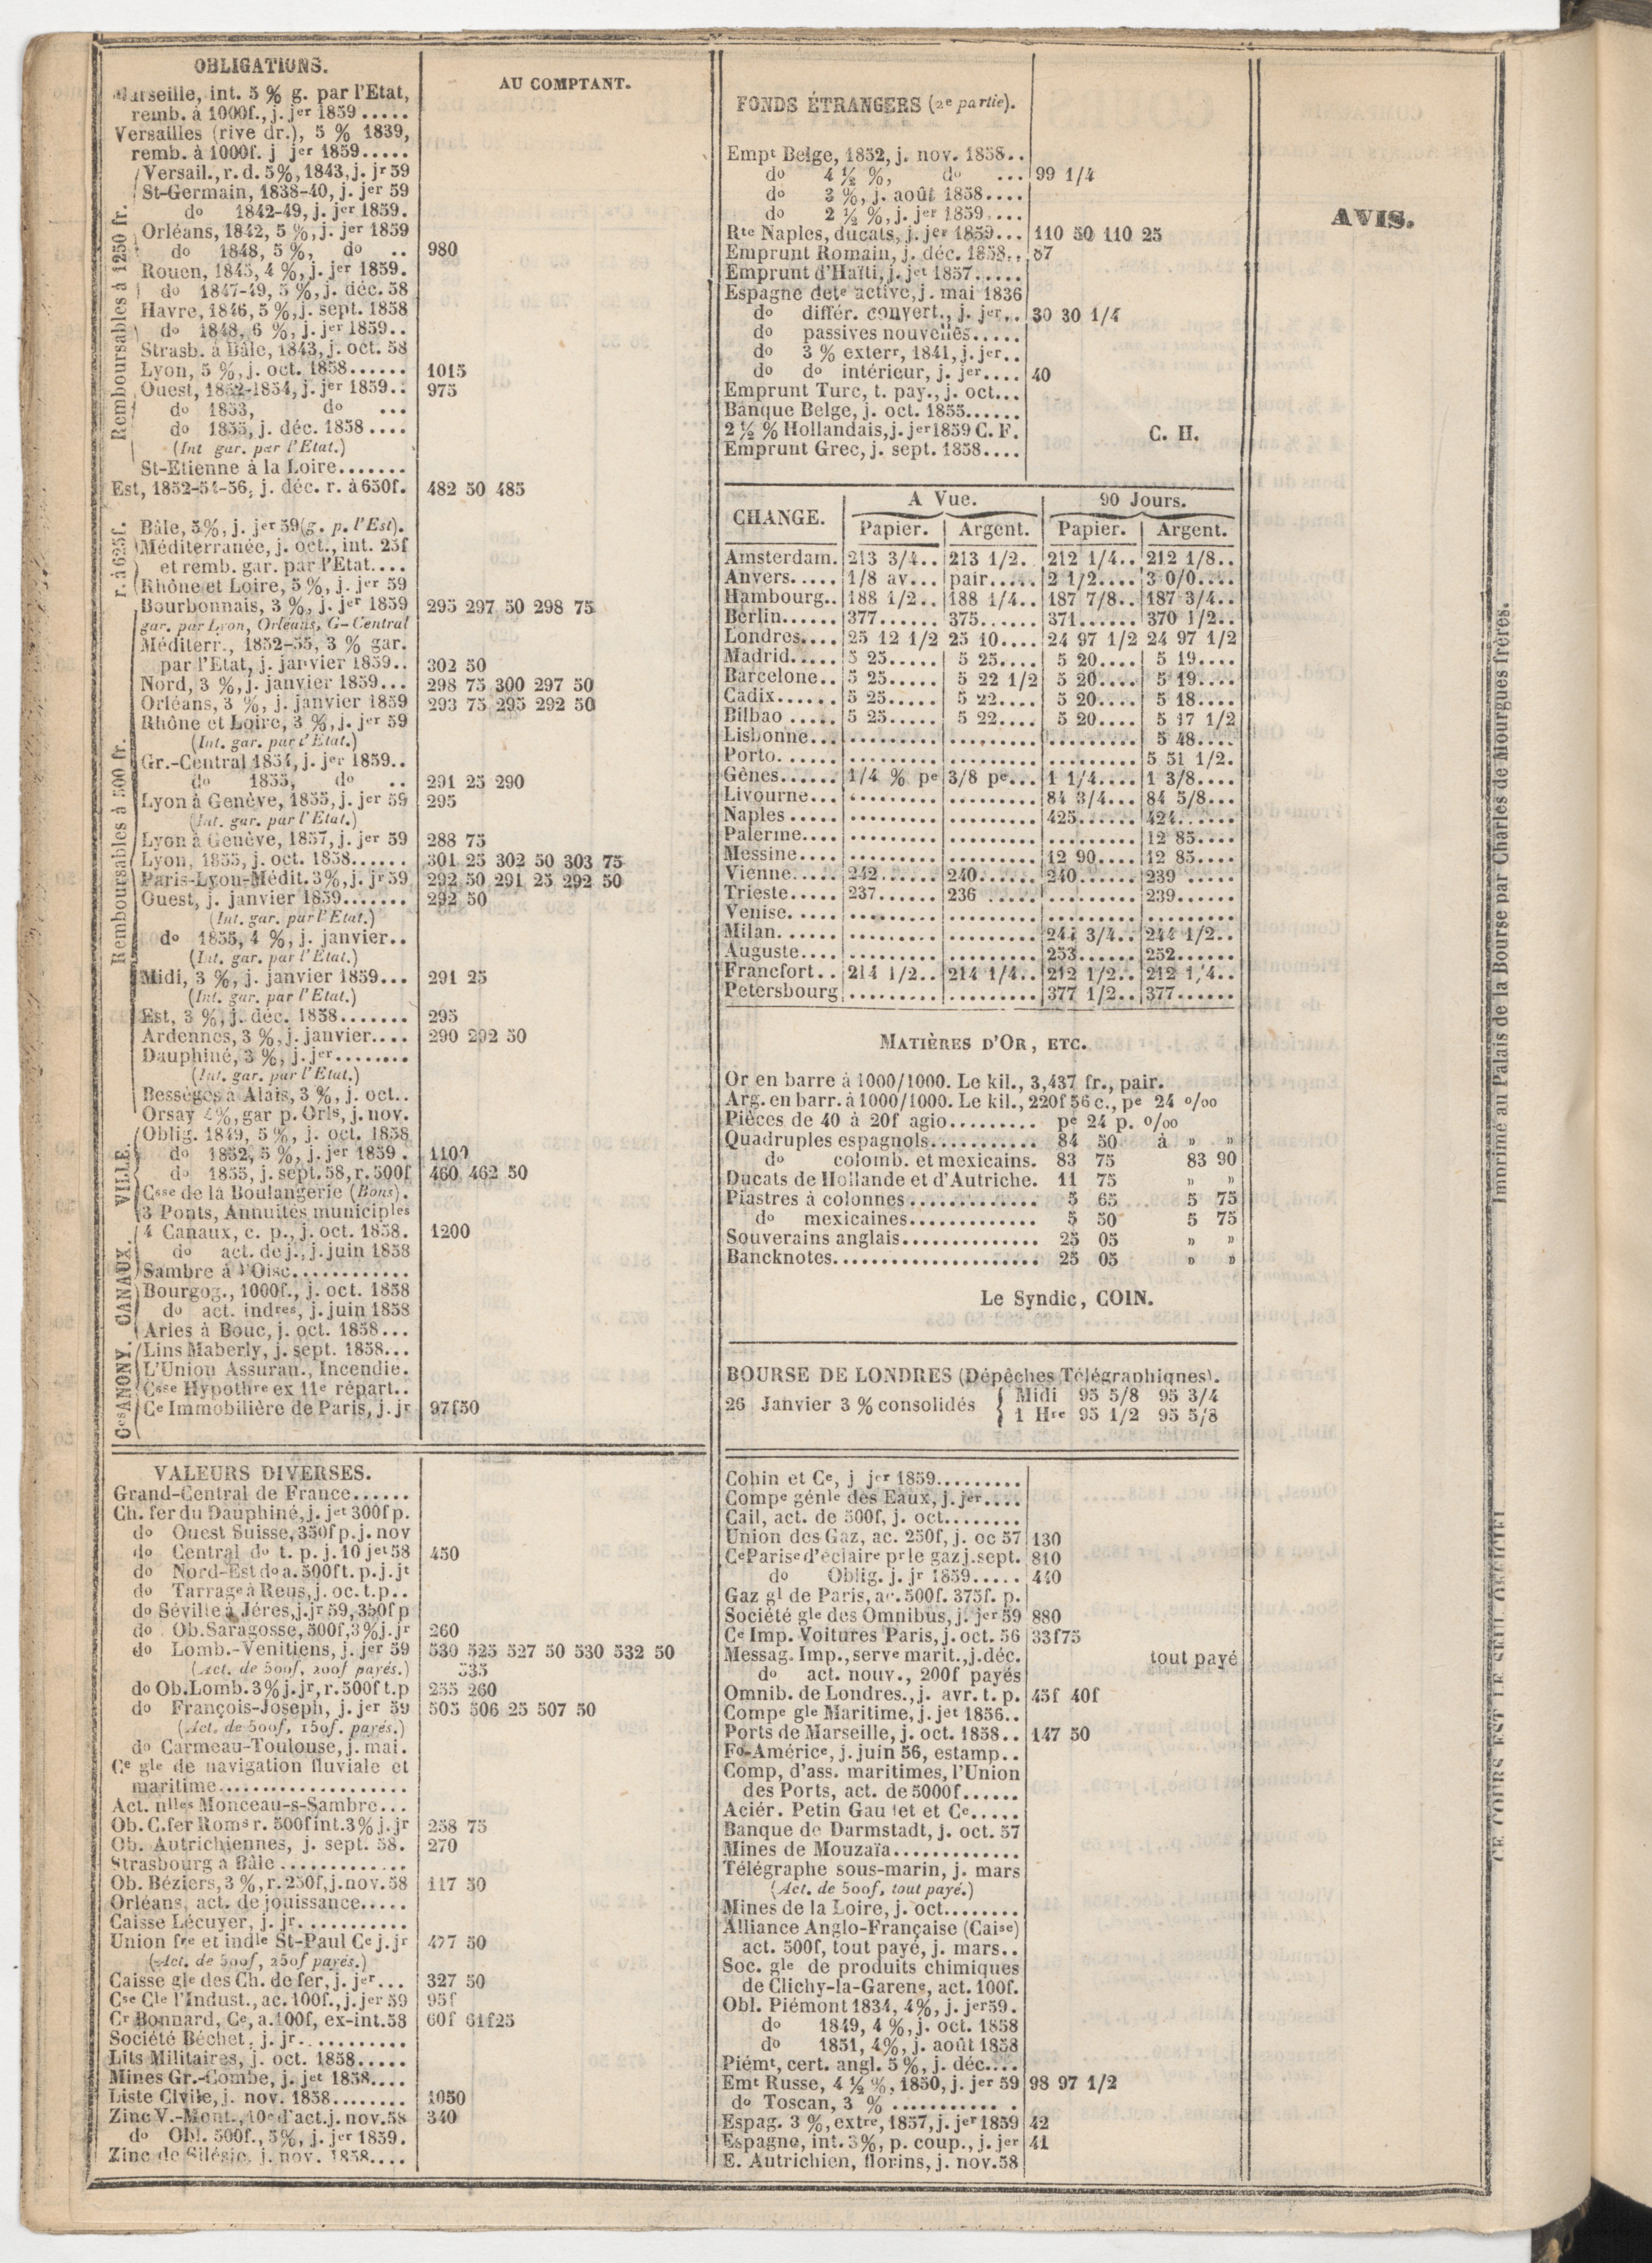 OBLIGATIONS.
AU COMPTANT.
Marseille, int. 5 % g. par l'Etat,
remb. à 1000f., j. jer 1859.....
Versailles (rive dr.), 5 % 1839,
remb. à 1000f. j jer 1859.....
Remboursables à 1250 fr.
Versail., r. d. 5%, 1843, j. jr 59
St-Germain, 1838-40, j. jer 59
do 1842-49, j. jer 1859.
Orléans, 1842, 5 %, j. jer 1859
do 1848, 5 %, do .. 980
Rouen, 1845, 4 %, j. jer 1859.
do 1847-49, 5 %, j. déc. 58
Havre, 1846, 5 %, j. sept. 1858
do 1848, 6 %, j. jer 1859..
Strasb. à Bâle, 1843, j. oct. 58
Lyon, 5 %, j. oct. 1858...... 1015
Ouest, 1852-1854, j. jer 1859.. 975
do 1853, do ...
do 1855, j. déc. 1858....
(Int gar. par l'Etat.)
St-Etienne à la Loire.......
Est, 1852-54-56, j. déc. r. à 650f. 482 50 485
r. à 625f.
Bâle, 5%, j. jer 59 (g. p. l'Est).
Méditerranée, j. oct., int. 25f
et remb. gar. par l'Etat....
Rhône et Loire, 5 %, j. jer 59
Remboursables à 500 fr.
Bourbonnais, 3 %, j. jer 1859 295 297 50 298 75
gar. par Lyon, Orléans, G-Central
Méditerr., 1852-55, 3 % gar.
par l'Etat, j. janvier 1859.. 302 50
Nord, 3 %, j. janvier 1859... 298 75 300 297 50
Orléans, 3 %, j. janvier 1859 293 75 295 292 50
Rhône et Loire, 3 %, j. jer 59
(Int. gar. par l'Etat.)
Gr.-Central 1854, j. jer 1859..
do 1855, do .. 291 25 290
Lyon à Genève, 1855, j. jer 59 295
(Int. gar. par l'Etat.)
Lyon à Genève, 1857, j. jer 59 288 75
Lyon, 1855, j. oct. 1858...... 301 25 302 50 303 75
Paris-Lyon-Médit. 3%, j. jr 59 292 50 291 25 292 50
Ouest, j. janvier 1859....... 292 50
(Int. gar. par l'Etat.)
do 1855, 4 %, j. janvier..
(Int. gar. par l'Etat.)
Midi, 3 %, j. janvier 1859... 291 25
(Int. gar. par l'Etat.)
Est, 3 %, j. déc. 1858....... 295
Ardennes, 3 %, j. janvier.... 290 292 50
Dauphiné, 3 %, j. jer........
(Int. gar. par l'Etat.)
Bességes à Alais, 3 %, j. oct..
Orsay 4%, gar p. Orls, j. nov.
VILLE.
Oblig. 1849, 5 %, j. oct. 1858
do 1852, 5 %, j. jer 1859. 1100
do 1855, j. sept. 58, r. 500f 460 462 50
Csse de la Boulangerie (Bons).
3 Ponts, Annuités municiples
CANAUX.
4 Canaux, c. p., j. oct. 1858. 1200
do act. de j., j. juin 1858
Sambre à l'Oise............
Bourgog., 1000f., j. oct. 1858
do act. indres, j. juin 1858
Arles à Bouc, j. oct. 1858...
Ces ANONY.
Lins Maberly, j. sept. 1858...
L'Union Assuran., Incendie.
Csse Hypothre ex 11e répart..
Ce Immobilière de Paris, j. jr 97f50
VALEURS DIVERSES.
Grand-Central de France......
Ch. fer du Dauphiné, j. jet 300f p.
do Ouest Suisse, 350f p. j. nov
do Central do t. p. j. 10 jet 58 450
do Nord-Est do a. 500f t. p. j. jt
do Tarrage à Reus, j. oc. t. p..
do Séville à Jéres, j. jr 59, 350f p
do Ob. Saragosse, 500f, 3% j. jr 260
do Lomb.-Venitiens, j. jer 59 530 525 527 50 530 532 50
(Act. de 500f, 200f payés.) 535
do Ob. Lomb. 3% j. jr, r. 500f t. p 255 260
do François-Joseph, j. jer 59 505 506 25 507 50
(Act. de 500f, 150f. payés.)
do Carmeau-Toulouse, j. mai.
Ce gle de navigation fluviale et
maritime...................
Act. nlles Monceau-s-Sambre...
Ob. C. fer Roms r. 500f int. 3% j. jr 258 75
Ob. Autrichiennes, j. sept. 58. 270
Strasbourg à Bâle.............
Ob. Béziers, 3 %, r. 250f, j. nov. 58 117 50
Orléans, act. de jouissance.....
Caisse Lécuyer, j. jr...........
Union fre et indle St-Paul Ce j. jr 477 50
(Act. de 500f, 250f payés.)
Caisse gle des Ch. de fer, j. jer... 327 50
Cse Cle l'Indust., ac. 100f., j. jer 59 95f
Cr Bonnard, Ce, a. 100f, ex-int. 58 60f 61f25
Société Béchet, j. jr...........
Lits Militaires, j. oct. 1858.....
Mines Gr.-Combe, j. jet 1858....
Liste Civile, j. nov. 1858........ 1050
Zinc V.-Mont., 10e d'act. j. nov. 58 340
do Obl. 500f., 5%, j. jer 1859.
Zinc de Silésie, j. nov. 1858....
FONDS ÉTRANGERS (2e partie).
Empt Belge, 1852, j. nov. 1858..
do 4 ½ %, do ... 99 1/4
do 3 %, j. août 1858....
do 2 ½ %, j. jer 1859....
Rte Naples, ducats, j. jer 1859... 110 50 110 25
Emprunt Romain, j. déc. 1858.. 87
Emprunt d'Haïti, j. jet 1857.....
Espagne dete active, j. mai 1836
do différ. convert., j. jer.. 30 30 1/4
do passives nouvelles.....
do 3 % exterr, 1841, j. jer..
do do intérieur, j. jer.... 40
Emprunt Turc, t. pay., j. oct...
Banque Belge, j. oct. 1855......
2 ½ % Hollandais, j. jer 1859 C. F.
C. H.
Emprunt Grec, j. sept. 1858....
CHANGE.
A Vue. 90 Jours.
Papier. Argent. Papier. Argent.
Amsterdam. 213 3/4.. 213 1/2. 212 1/4.. 212 1/8..
Anvers..... 1/8 av... pair..... 2 1/2.... 3 0/0....
Hambourg.. 188 1/2.. 188 1/4.. 187 7/8.. 187 3/4..
Berlin...... 377...... 375...... 371...... 370 1/2..
Londres.... 25 12 1/2 25 10.... 24 97 1/2 24 97 1/2
Madrid..... 5 25..... 5 25.... 5 20.... 5 19....
Barcelone.. 5 25..... 5 22 1/2 5 20.... 5 19....
Cadix...... 5 25..... 5 22.... 5 20.... 5 18....
Bilbao ..... 5 25..... 5 22.... 5 20.... 5 17 1/2
Lisbonne... ......... ......... ......... 5 48....
Porto...... ......... ......... ......... 5 51 1/2.
Gênes...... 1/4 % pe 3/8 pe... 1 1/4.... 1 3/8....
Livourne... ......... ......... 84 3/4... 84 5/8...
Naples ..... ......... ......... 425...... 424......
Palerme.... ......... ......... ......... 12 85....
Messine.... ......... ......... 12 90.... 12 85....
Vienne..... 242...... 240...... 240...... 239 .....
Trieste..... 237...... 236 ..... ......... 239......
Venise..... ......... ......... ......... .........
Milan...... ......... ......... 244 3/4.. 244 1/2..
Auguste.... ......... ......... 253...... 252......
Francfort.. 214 1/2.. 214 1/4.. 212 1/2.. 212 1/4..
Petersbourg ......... ......... 377 1/2.. 377......
MATIÈRES D'OR, ETC.
Or en barre à 1000/1000. Le kil., 3,437 fr., pair.
Arg. en barr. à 1000/1000. Le kil., 220f 56 c., pe 24 o/oo
Pièces de 40 à 20f agio......... pe 24 p. o/oo
Quadruples espagnols........... 84 50 à » »
do colomb. et mexicains. 83 75 83 90
Ducats de Hollande et d'Autriche. 11 75 » »
Piastres à colonnes............. 5 65 5 75
do mexicaines............. 5 50 5 75
Souverains anglais.............. 25 05 » »
Bancknotes..................... 25 05 » »
Le Syndic, COIN.
BOURSE DE LONDRES (Dépêches Télégraphiques).
26 Janvier 3 % consolidés
Midi 95 5/8 95 3/4
1 Hre 95 1/2 95 5/8
Cohin et Ce, j jer 1859.........
Compe génle des Eaux, j. jer....
Cail, act. de 500f, j. oct........
Union des Gaz, ac. 250f, j. oc 57 130
Ce Parise d'éclaire pr le gaz j. sept. 810
do Oblig. j. jr 1859..... 440
Gaz gl de Paris, ac. 500f. 375f. p.
Société gle des Omnibus, j. jer 59 880
Ce Imp. Voitures Paris, j. oct. 56 33f75
Messag. Imp., serve marit., j. déc. tout payé
do act. nouv., 200f payés
Omnib. de Londres., j. avr. t. p. 45f 40f
Compe gle Maritime, j. jet 1856..
Ports de Marseille, j. oct. 1858.. 147 50
Fo-Américe, j. juin 56, estamp..
Comp, d'ass. maritimes, l'Union
des Ports, act. de 5000f......
Aciér. Petin Gaudet et Ce.....
Banque de Darmstadt, j. oct. 57
Mines de Mouzaïa.............
Télégraphe sous-marin, j. mars
(Act. de 500f, tout payé.)
Mines de la Loire, j. oct........
Alliance Anglo-Française (Caise)
act. 500f, tout payé, j. mars..
Soc. gle de produits chimiques
de Clichy-la-Garene, act. 100f.
Obl. Piémont 1834, 4%, j. jer 59.
do 1849, 4 %, j. oct. 1858
do 1851, 4%, j. août 1858
Piémt, cert. angl. 5 %, j. déc....
Emt Russe, 4 ½ %, 1850, j. jer 59 98 97 1/2
do Toscan, 3 % ........... .
Espag. 3 %, extre, 1857, j. jer 1859 42
Espagne, int. 3%, p. coup., j. jer 41
E. Autrichien, florins, j. nov. 58
AVIS.
Imprimé au Palais de la Bourse par Charles de Mourgues frères.
CE COURS EST LE SEUL OFFICIEL